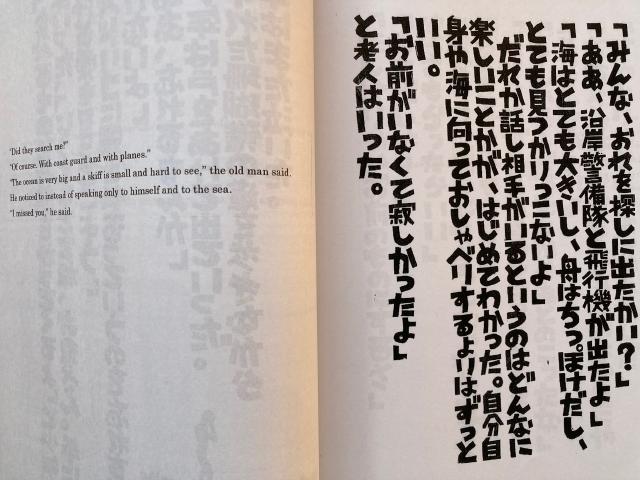 "Did they search me?"
"Of course. With coast guard and with planes."
"The ocean is very big and a skiff is small and hard to see," the old man said.
He noticed to instead of speaking only to himself and to the sea.
"I missed you," he said.
「みんな、おれを探しに出たかい？」
「ああ、沿岸警備隊と飛行機が出たよ」
「海はとても大きいし、舟はちっぽけだし、
とても見つかりっこないよ」
だれか話し相手がいるというのはどんなに
楽しいことかが、はじめてわかった。自分自
身や海に向っておしゃべりするよりはずっと
いい。
「お前がいなくて寂しかったよ」
と老人はいった。